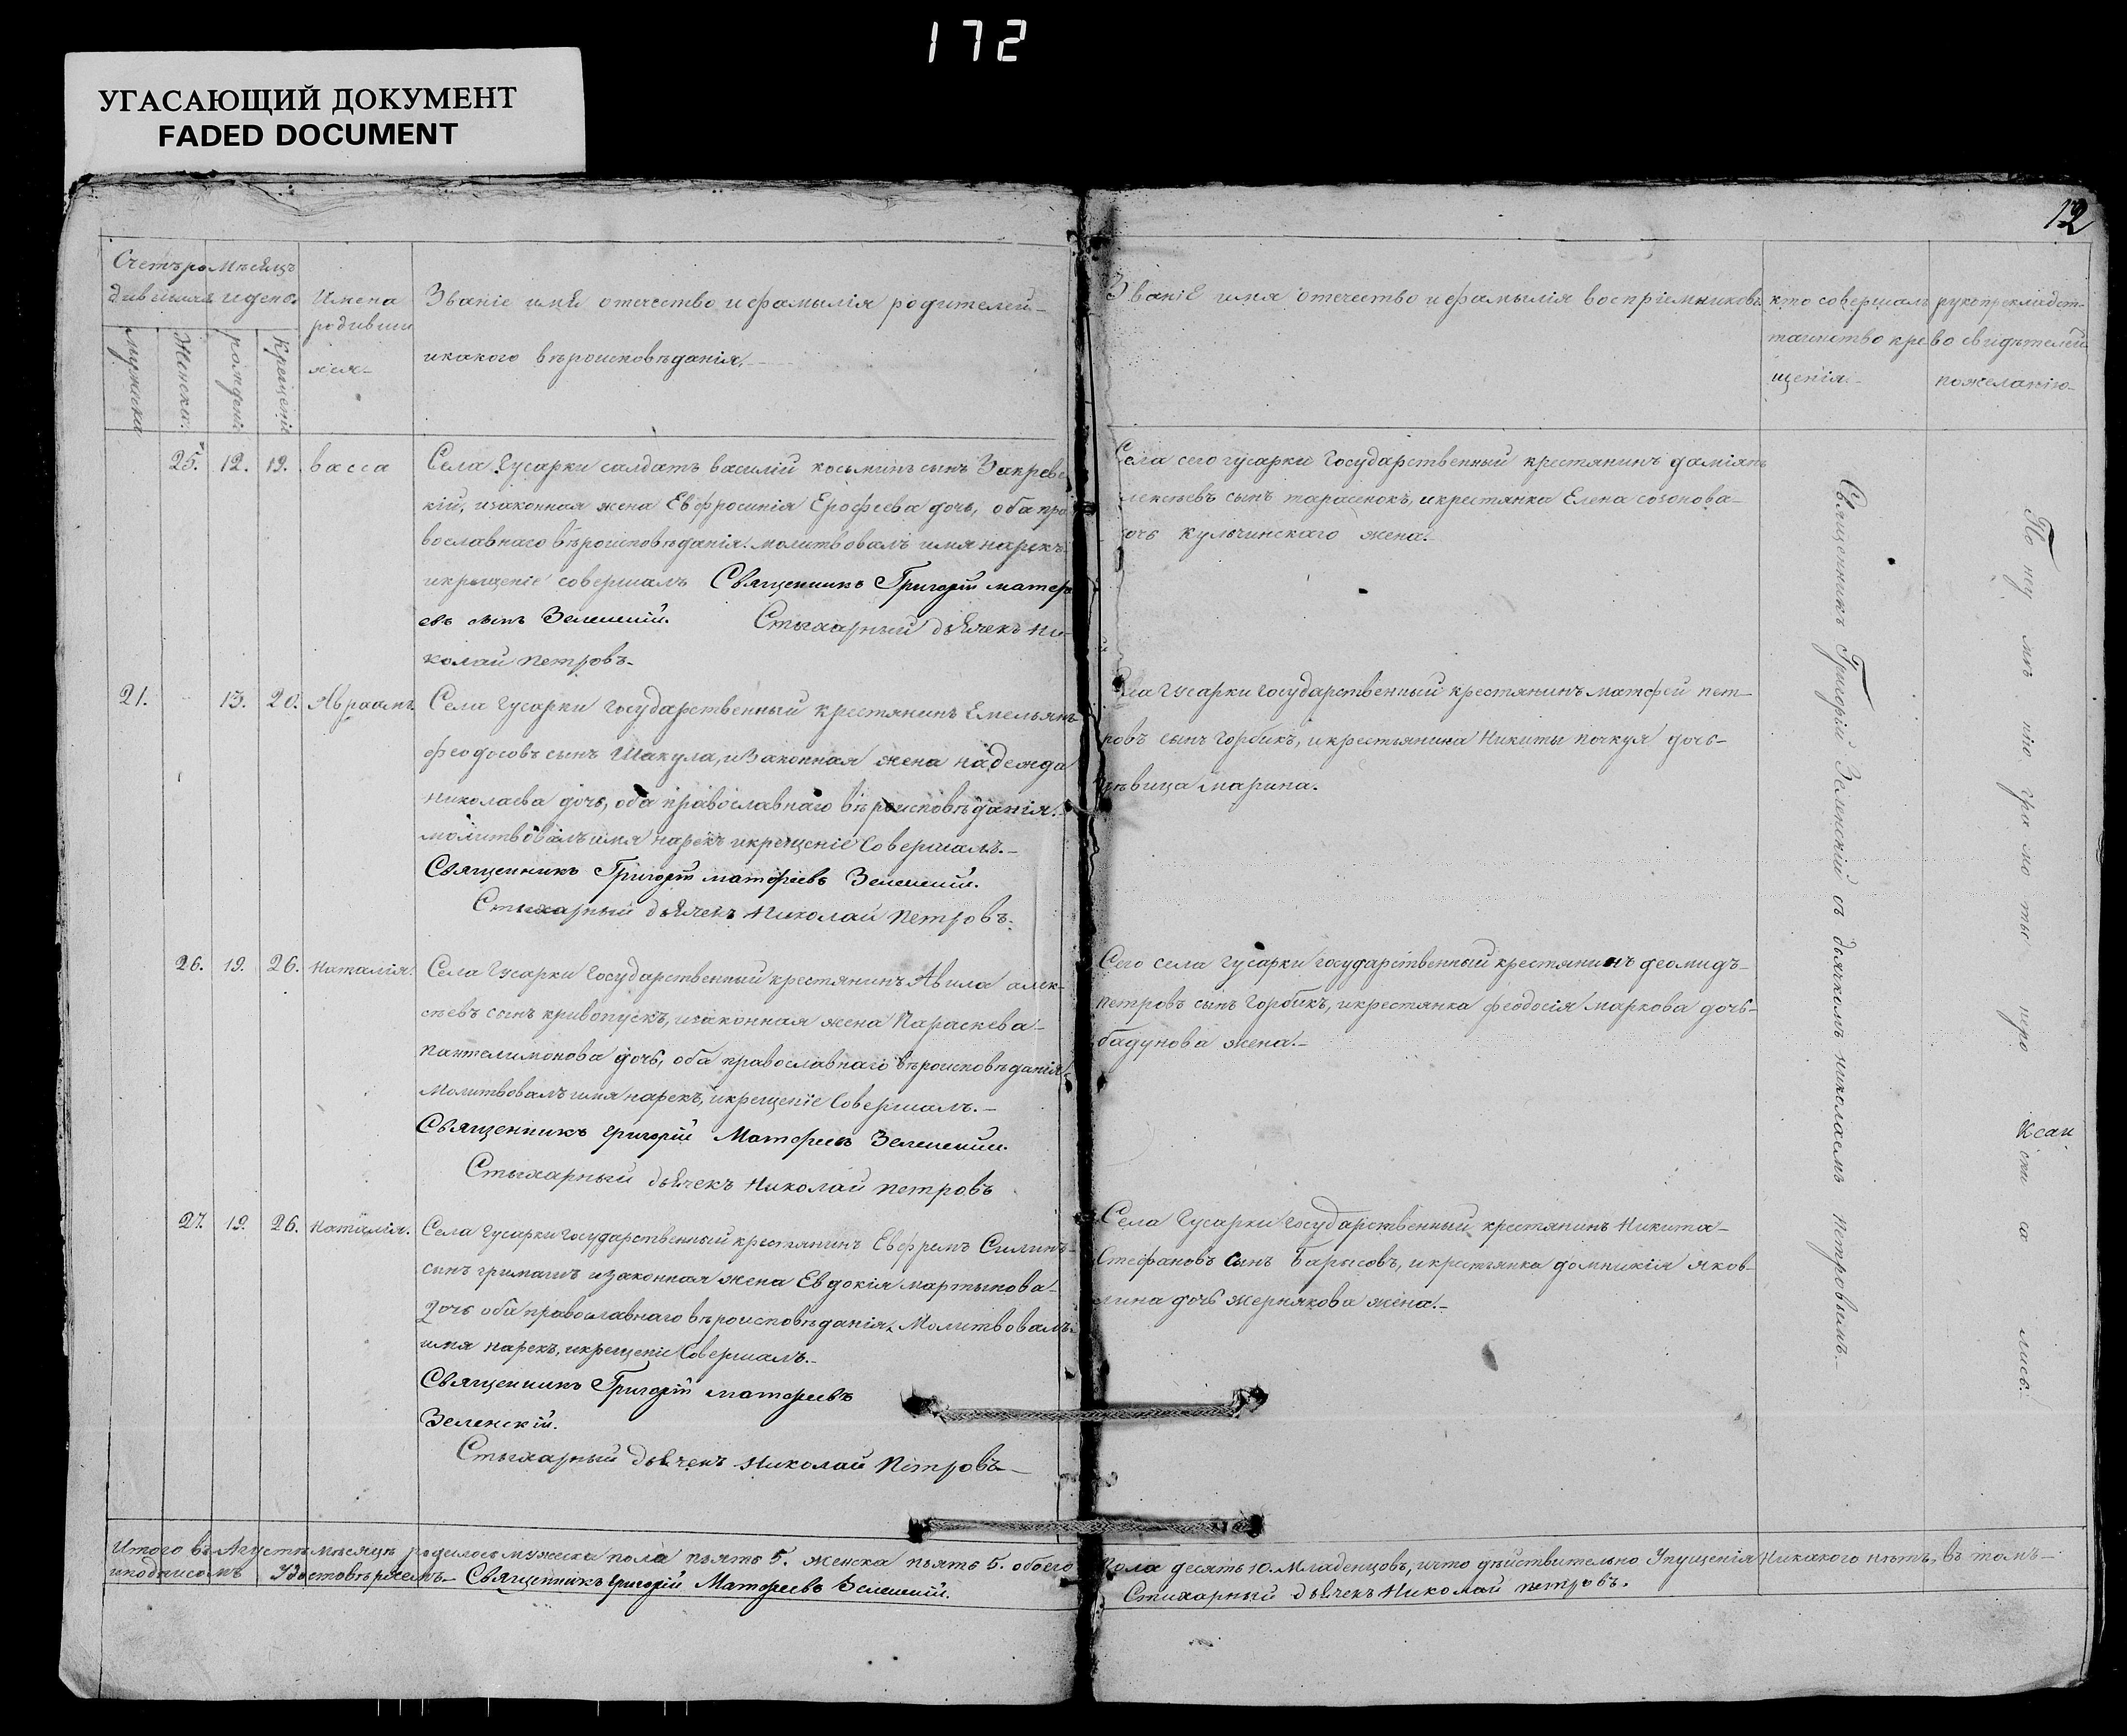 172
УГАСАЮЩИЙ ДОКУМЕНТ
FADED DOCUMENT
12
Счетъ ро
дившихъ
Мѣсяцъ
и день
мужска
Женска.
рожденіе
крещеніе
Имена
родивши
хся
Званіе имя отечество и фамылія родителей
и какого вѣроисповѣданія.
Званіе имя отечество и фамылія воспріемниковъ
кто совершалъ
таинство кре
щенія
рукоприкладст
во свидѣтелей
пожеланію
25. 12. 19. васса
Села Гусарки салдатъ василій косьминъ сынъ Закревс
кій, изаконная жена Евфросинія Ерофеева дочь, оба пра
вославнаго вѣроисповѣданія. молитвовалъ имя нарекъ
икрыщеніе совершалъ Священникъ Григорій матфе
евъ сынъ Зеленскій. Стыхарный дьячекъ Ни-
колай петровъ
Села сего гусарки Государственный крестянинъ даміянъ
лексѣевъ сынъ тарасенокъ, икрестянка Елена созонова
очь кульчинскаго жена.
21. 13. 20. Авраамъ
Села Гусарки Государственный крестянинъ Емельянъ
феодосовъ сынъ Шакула, изаконная жена надежда
николаева дочь, оба православнаго вѣроисповѣданія.
молитвовалъ имя нарекъ икрещеніе Совершалъ.
Священникъ Григорій матфѣевъ Зеленскій.
Стыхарный дьячекъ Николай петровъ.
ела Гусарки Государственный крестянинъ матфей пет-
ровъ сынъ горбикъ, икрестьянина Никиты почкуя дочь
дѣвица марина.
26. 19. 26. наталія.
Села Гусарки Государственный крестянинъ Авила алек-
сѣевъ сынъ кривопускъ, изаконная жена Параскева
пантелимонова дочь, оба православнаго вѣроисповѣданія
Молитвовалъ имя нарекъ, икрещеніе Совершалъ.
Священникъ григорій Матфеевъ Зеленский.
Стыхарный дьячекъ Николай петровъ
Сего села гусарки государственный крестянинъ деомидъ
петровъ сынъ горбикъ, икрестянка феодосія маркова дочь
бадунова жена.
27. 19. 26. наталія.
Села гусарки государственный крестянинъ Евфремъ Силинъ
сынъ гримашъ изаконная жена Евдокія мартынова
дочь оба православнаго вѣроисповѣданія. Молитвовалъ
имя нарекъ, икрещеніе Совершалъ.
Священникъ Григорій матфеевъ
Зеленскій.
Стыхарный дьячекъ Николай Петровъ
Села Гусарки Государственный крестянинъ Никита
Стефановъ сынъ Барысовъ, икрестьянка домникія яков-
лина дочь жернякова жена.
Священникъ Григорій Зеленскій съ дьячкомъ николаемъ петровымъ.
По неу мѣ нію гра мо ты перо ксаи
Итого въ Августѣ мѣсяцѣ родилось мужска пола пять 5. женска пять 5. обоего пола десять 10. Младенцовъ, ичто дѣйствительно Упущенія никакого нѣтъ, въ томъ
иподписомъ Удостовѣряемъ. Священникъ григорій Матфеевъ Зеленский.
Стихарный дьячекъ Николай петровъ.